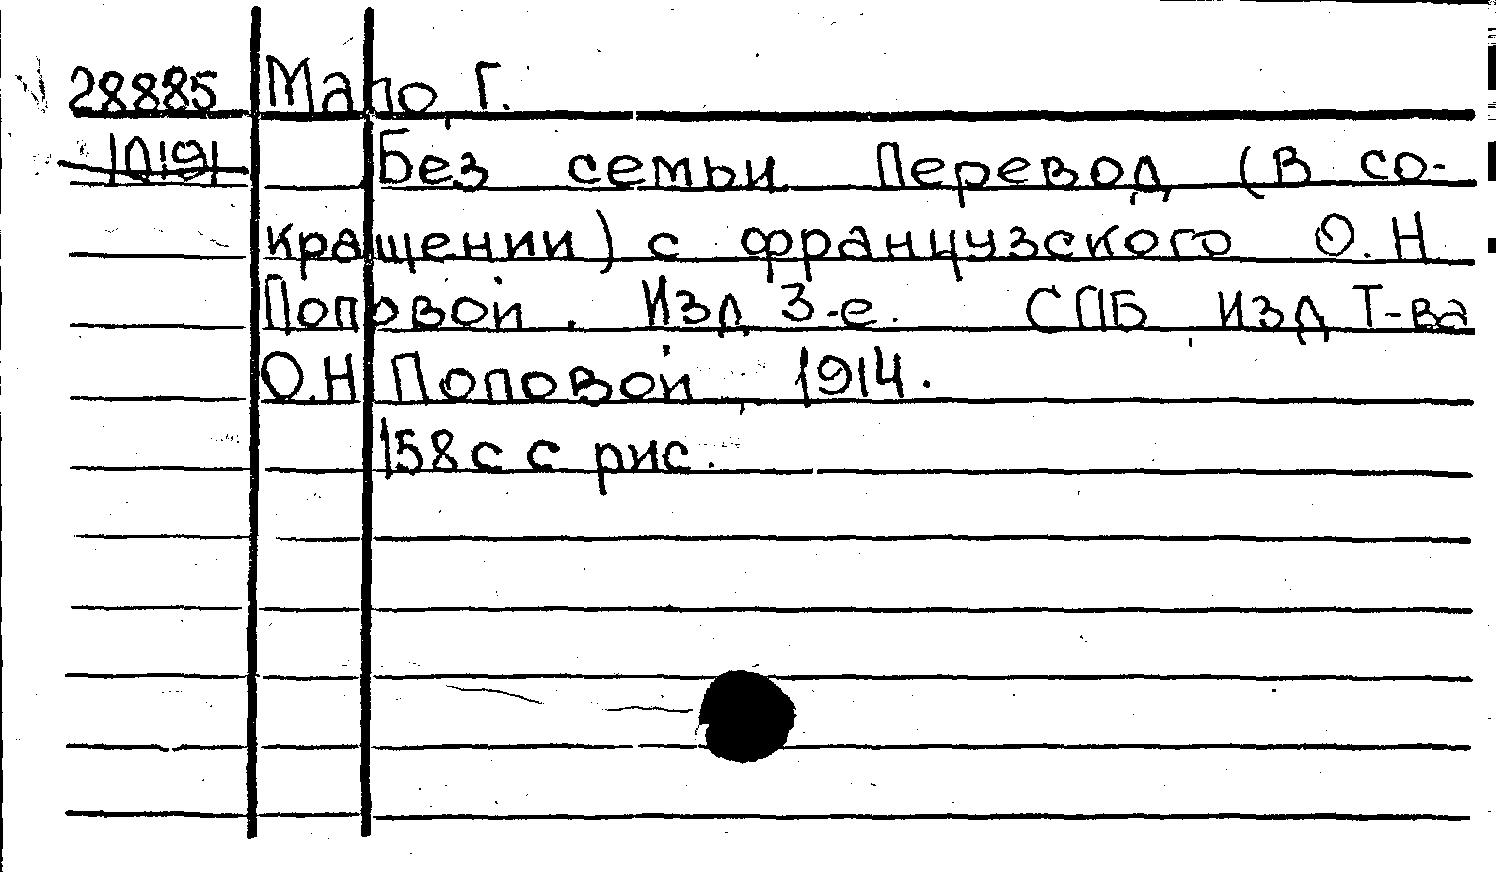 28885 Мало Г.
10191 Без семьи Перевод (В со-
кращении) с французского О. Н
Поповой. Изд 3-е. СПБ Изд Т-ва
О.Н Поповой 1914.
158 с с рис.